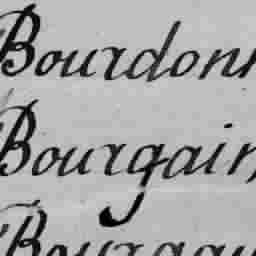 Bourdonn
Bourgain
Bourgau